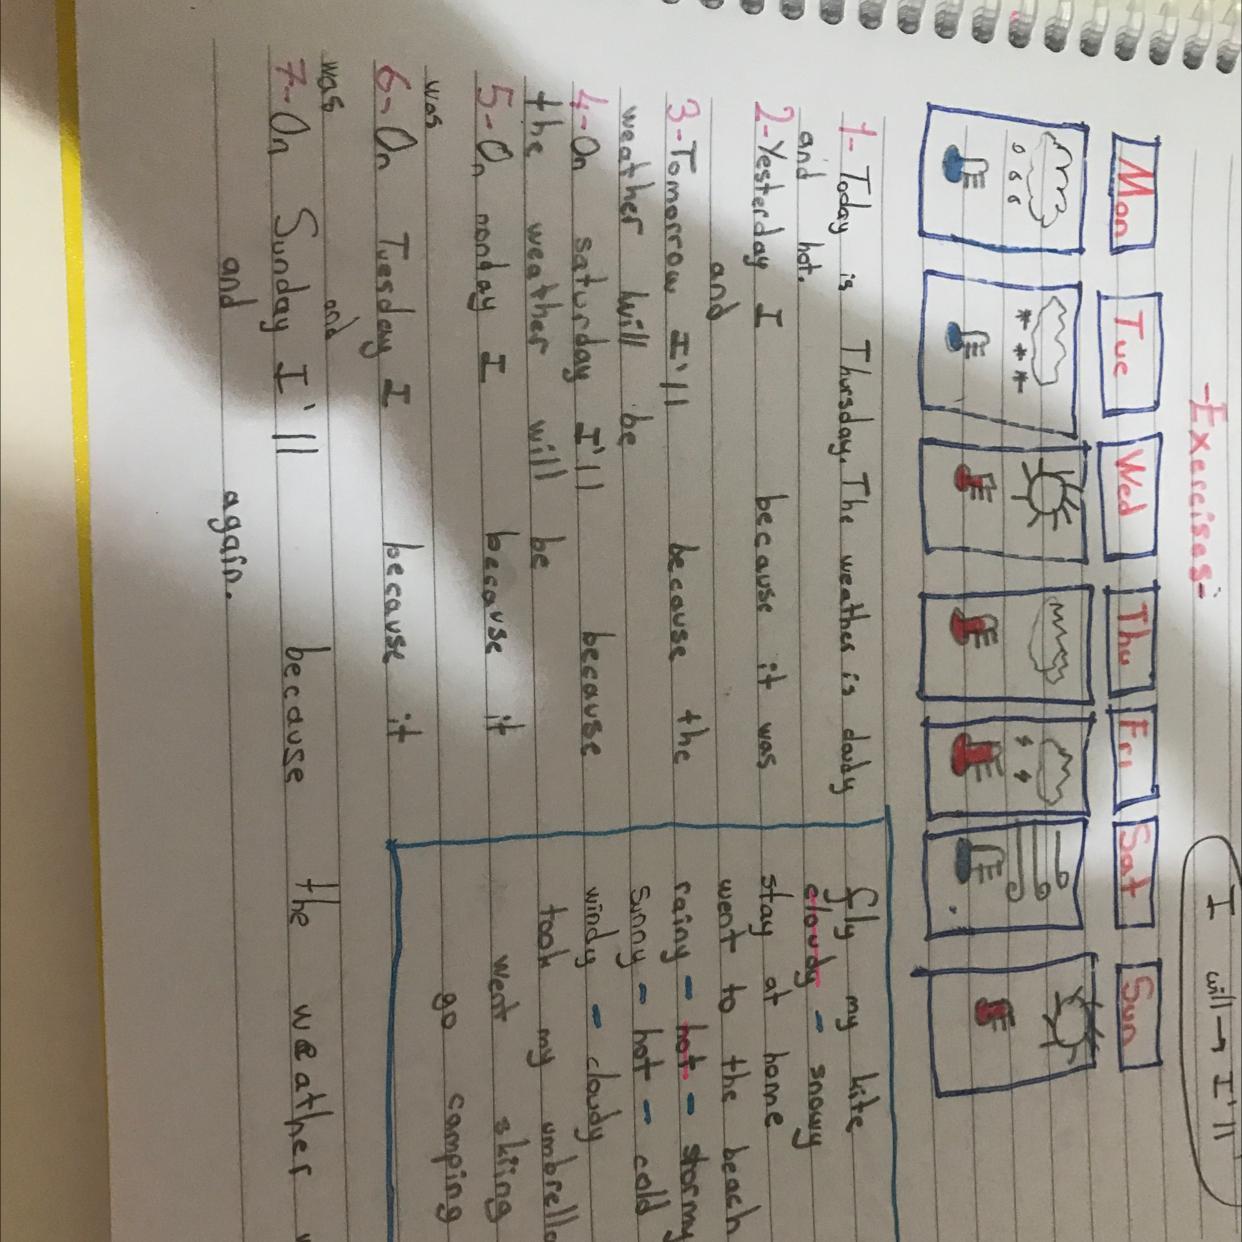 I will → I'll
-Exercises-
Mon Tue Wed Thu Fri Sat Sun
1- Today is Thursday. The weather is cloudy
and hot.
2- Yesterday I because it was
and
3- Tomorrow I'll because the
weather will be
4- On saturday I'll because
the weather will be
5- On monday I because it
was
6- On Tuesday I because it
was and
7- On Sunday I'll because the weather
and again.
fly my kite
cloudy - snowy
stay at home
went to the beach
rainy - hot - stormy
sunny - hot - cold
windy - cloudy
took my umbrella
went skiing
go camping